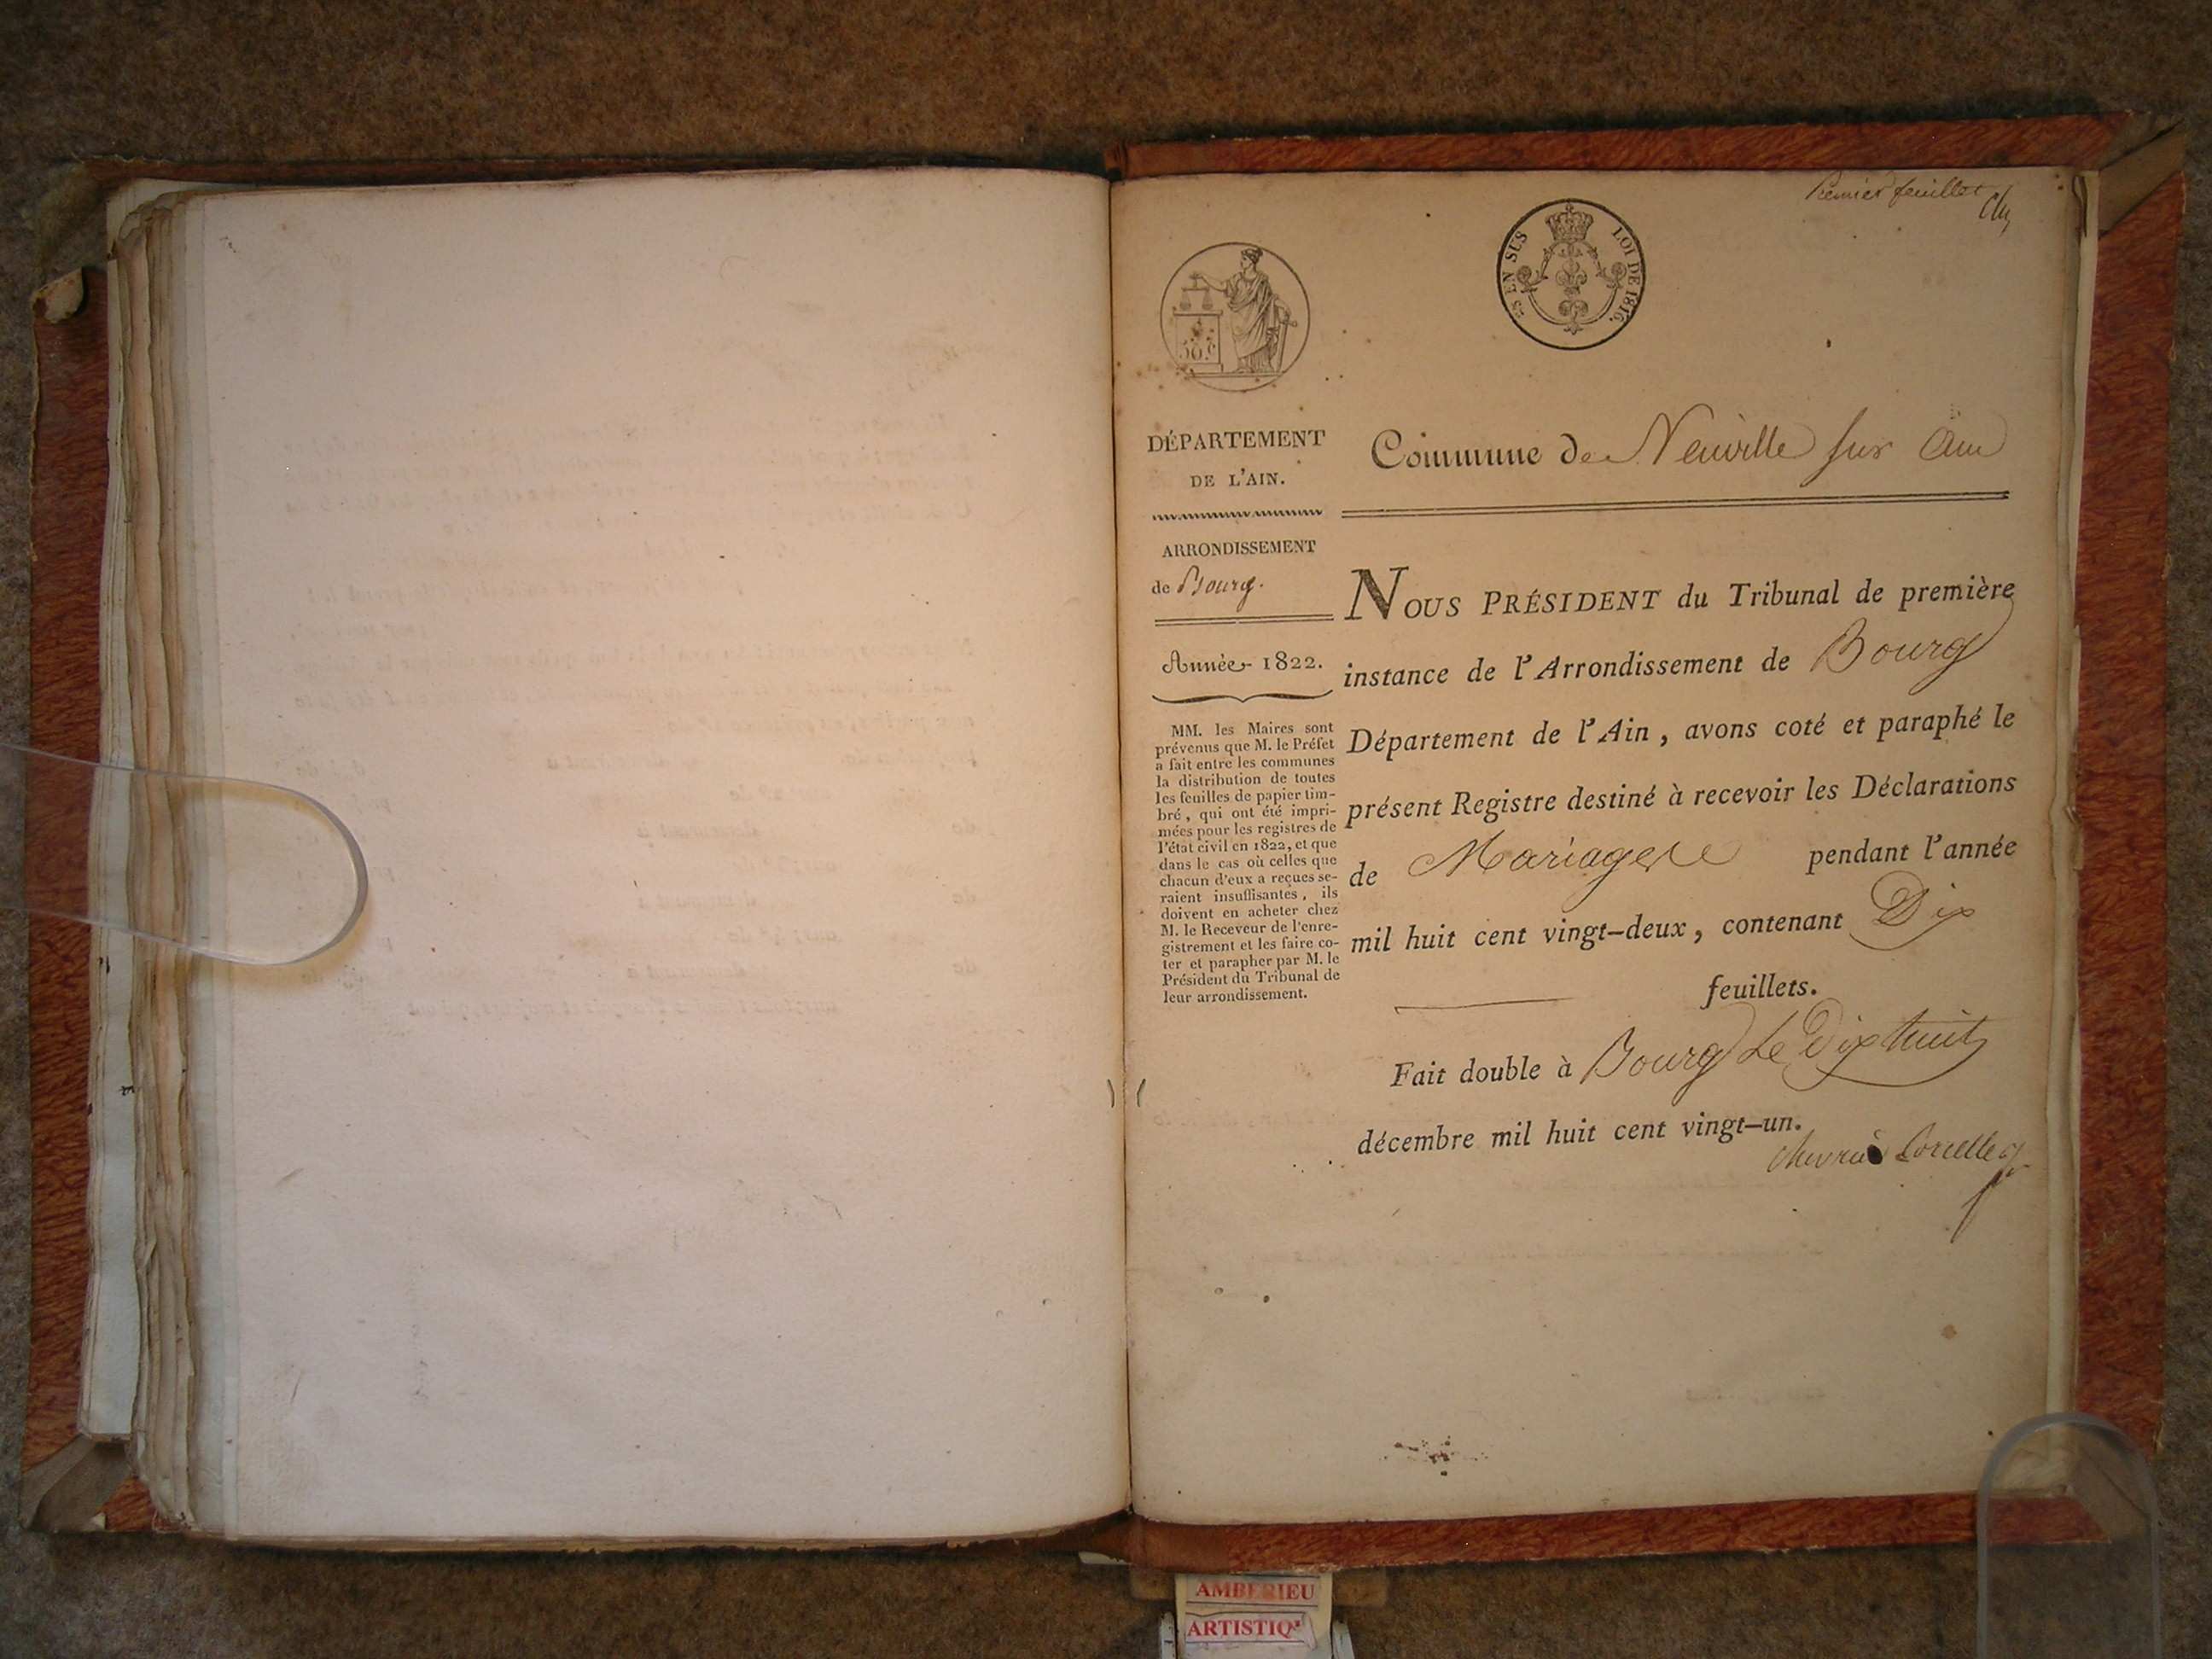 Premier feuillet
EN SUS LOI DE 1816.
50 c.
DÉPARTEMENT
DE L'AIN.
ARRONDISSEMENT
de Bourg.
Année 1822.
MM. les Maires sont
prévenus que M. le Préfet
a fait entre les communes
la distribution de toutes
les feuilles de papier tim-
bré, qui ont été impri-
mées pour les registres de
l'état civil en 1822, et que
dans le cas où celles que
chacun d'eux a reçues se-
raient insuffisantes, ils
doivent en acheter chez
M. le Receveur de l'enre-
gistrement et les faire co-
ter et parapher par M. le
Président du Tribunal de
leur arrondissement.
Commune de Neuville sur Ain
NOUS PRÉSIDENT du Tribunal de première
instance de l'Arrondissement de Bourg
Département de l'Ain, avons coté et paraphé le
présent Registre destiné à recevoir les Déclarations
de Mariages pendant l'année
mil huit cent vingt-deux, contenant Dix
feuillets.
Fait double à Bourg Le Dix huit
décembre mil huit cent vingt-un.
AMBERIEU
ARTISTIQ